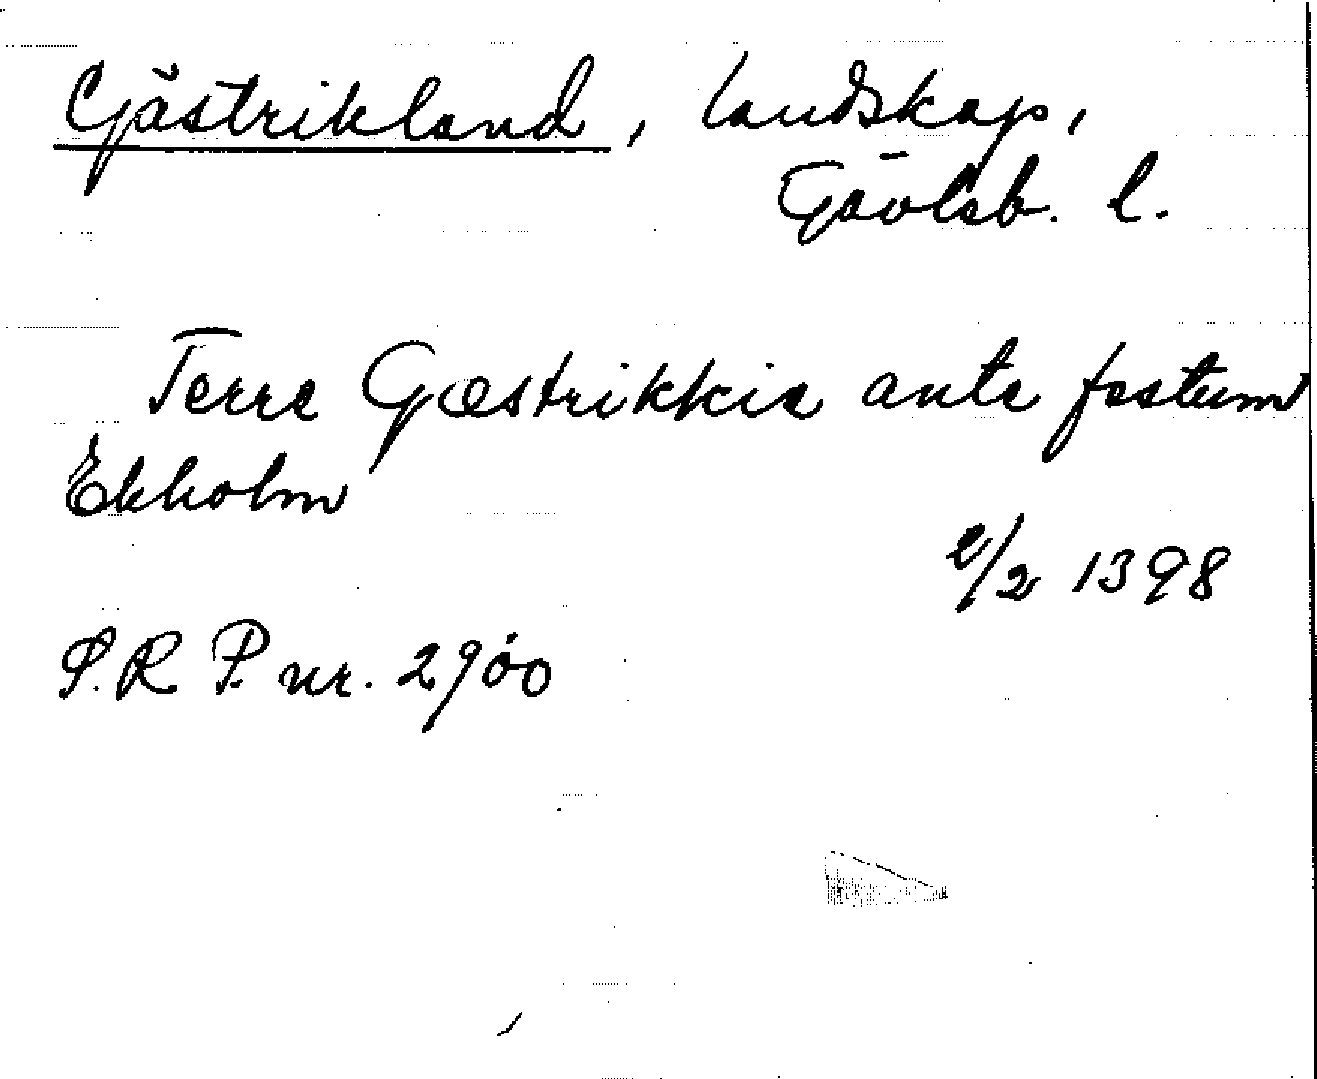 Gästrikland, landskap,
Gävleb. l.
Terra Gæstrikkia ante festum
Ekholm
2/2 1398
S.R P. nr. 2900